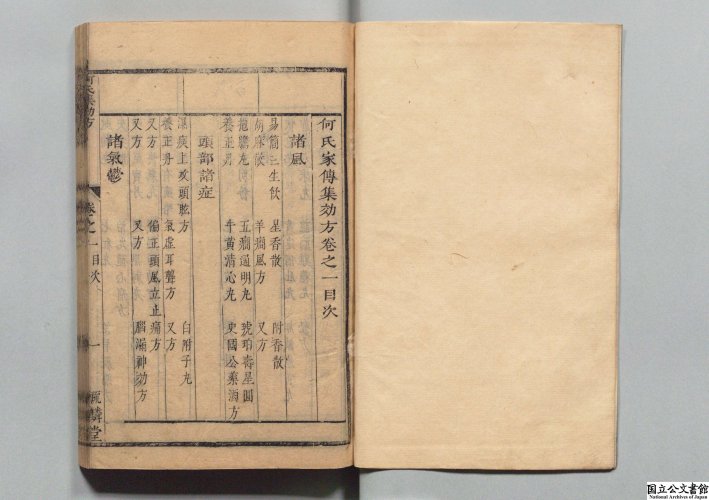 何氏家傳集効方卷之一目次
諸風
易簡三生飲 星香散 附香散
胡麻散 羊癎風方 又方
五癎通明丸 琥珀壽星圓
養正丹 牛黄清心丸 史國公藥酒方
頭部諸症
濕痰上攻頭眩方 白附子丸
養正丹 氣虚耳聾方 又方
又方 偏正頭風立止痛方
又方 又方 腦漏神効方
諸氣鬱
何氏集効方
卷之一目次
一
麟堂
国立公文書館
National Archives of Japan